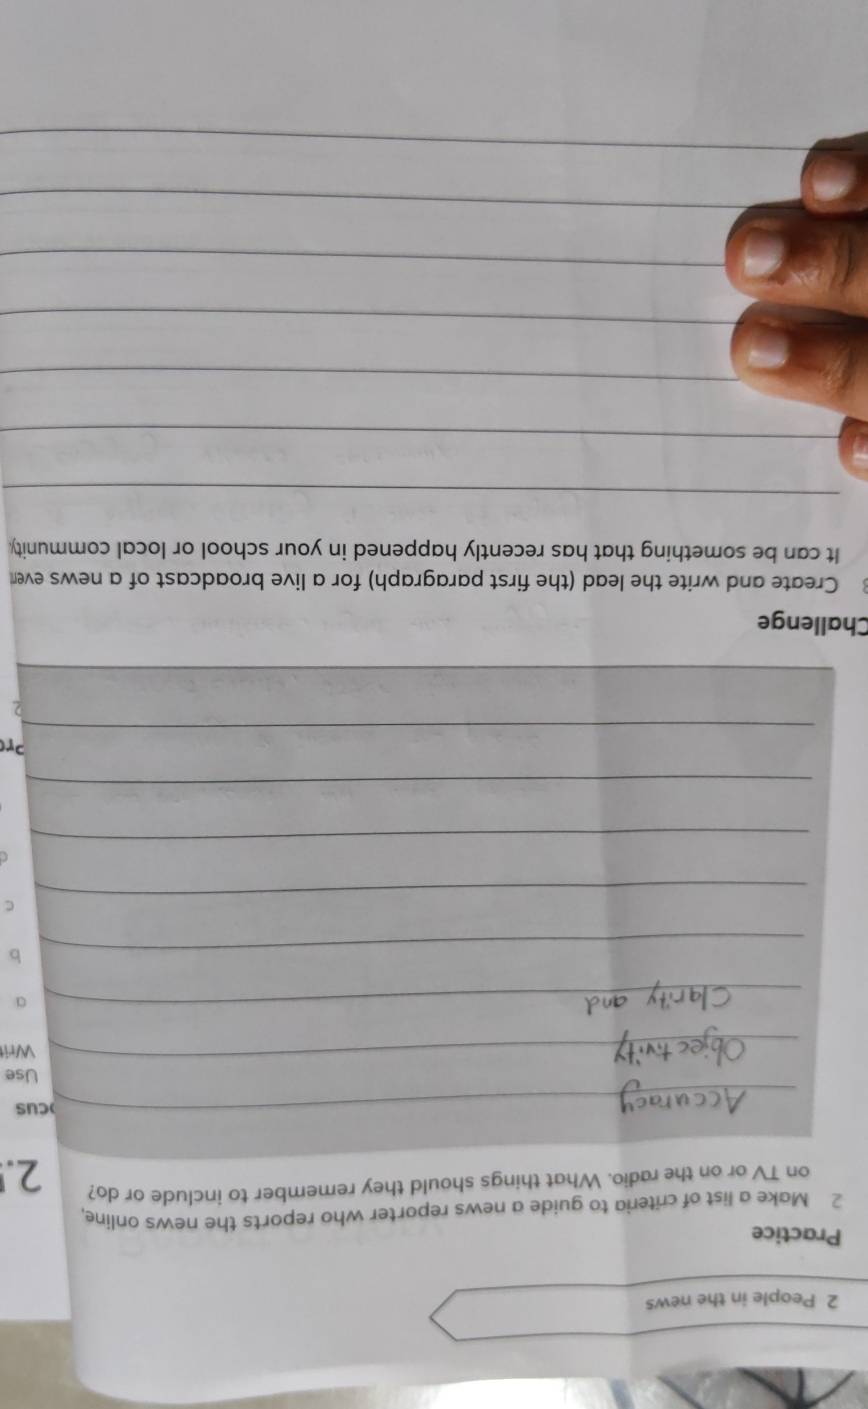 2 People in the news
Practice
2 Make a list of criteria to guide a news reporter who reports the news online,
on TV or on the radio. What things should they remember to include or do?
Accuracy
Objectivity
Clarity and
Challenge
3 Create and write the lead (the first paragraph) for a live broadcast of a news
It can be something that has recently happened in your school or local community.
2.
Use
a
b
c
d
2